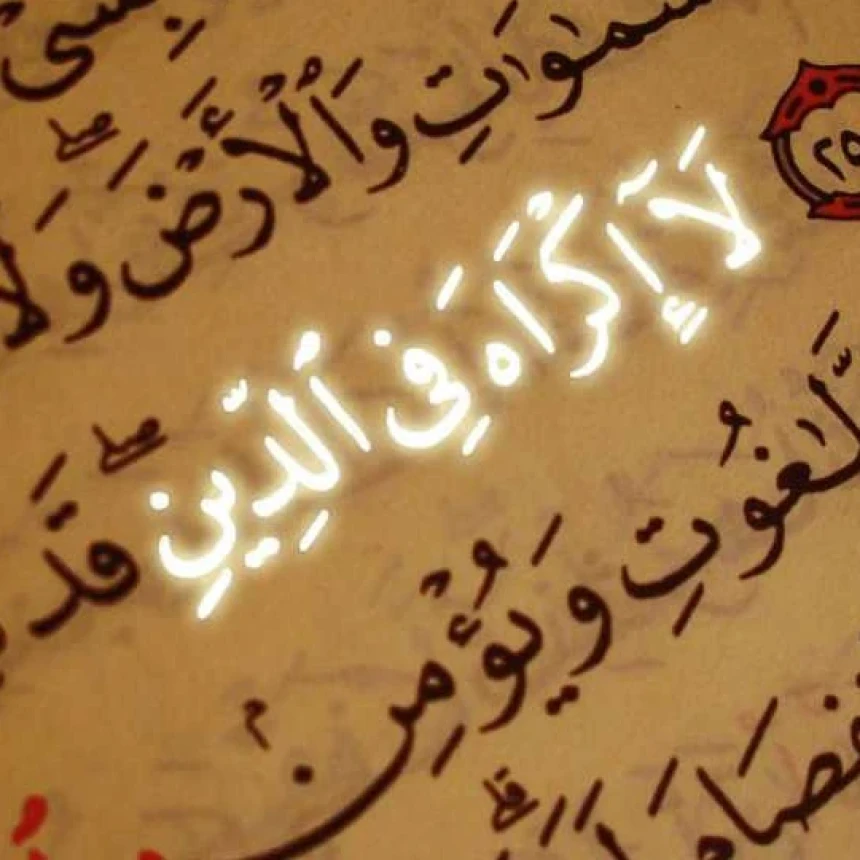 سمَٰوَٰتِ وَٱلْأَرْضَ ۖ وَلَا
٢٥
لَآ إِكْرَاهَ فِى ٱلدِّينِ ۖ قَد
ـّٰغُوتِ وَيُؤْمِنۢ
فِصَامَ